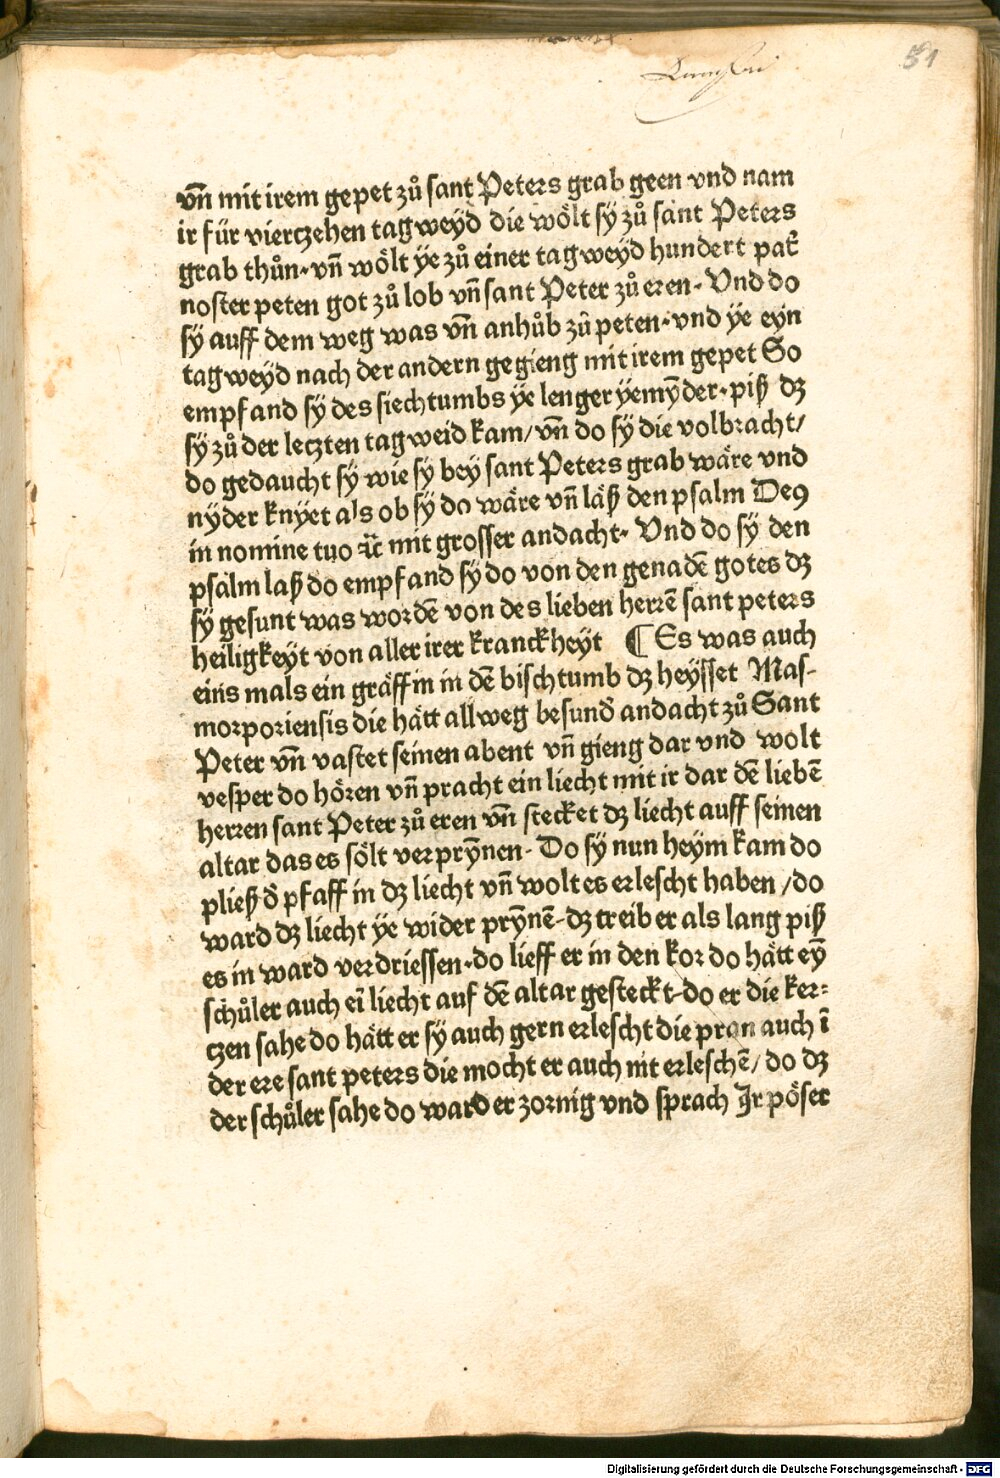 51
vñ mit irem gepet zů sant Peters grab geen vnd nam
ir für vierczehen tagweyd die wölt sÿ zů sant Peters
grab thůn· vñ wölt ÿe zů einer tagweyd hundert pat̃
noster peten got zů lob vñ sant Peter zů eren· Vnd do
sÿ auff dem weg was vñ anhůb zů peten· vnd ÿe eyn
tagweyd nach der andern gegieng mit irem gepet So
empfand sÿ des siechtumbs ÿe lenger ÿe mỹder· piß dz
sÿ zů der leczten tagweid kam/ vñ do sÿ die volbracht/
do gedaucht sÿ wie sÿ bey sant Peters grab wäre vnd
nÿder knyet als ob sÿ do wäre vñ läß den psalm Deꝰ
in nomine tuo ꝛc̃ mit grosser andacht· Vnd do sÿ den
psalm laß do empfand sÿ do von den genadē gotes dz
sÿ gesunt was wordē von des lieben herrē sant peters
heiligkeyt von aller irer kranckheyt ¶ Es was auch
eins mals ein gräffin in dē bischtumb dz heysset Mas-
morporiensis die hätt allweg besund̃ andacht zů Sant
Peter vñ vastet seinen abent vñ gieng dar vnd wolt
vesper do hören vñ pracht ein liecht mit ir dar dē liebē
herren sant Peter zů eren vñ stecket dz liecht auff seinen
altar das es sölt verprỹnen· Do sÿ nun heym kam do
pließ d̃ pfaff in dz liecht vñ wolt es erlescht haben /do
ward dz liecht ÿe wider prỹnē· dz treib er als lang piß
es in ward verdriessen· do lieff er in den kor do hätt eỹ
schůler auch eī liecht auf dē altar gesteckt· do er die ker⸗
czen sahe do hätt er sÿ auch gern erlescht die pran auch ī
der ere sant peters die mocht er auch nit erleschē/ do dz
der schůler sahe do ward er zornig vnd sprach Jr pöser
Digitalisierung gefördert durch die Deutsche Forschungsgemeinschaft - DFG